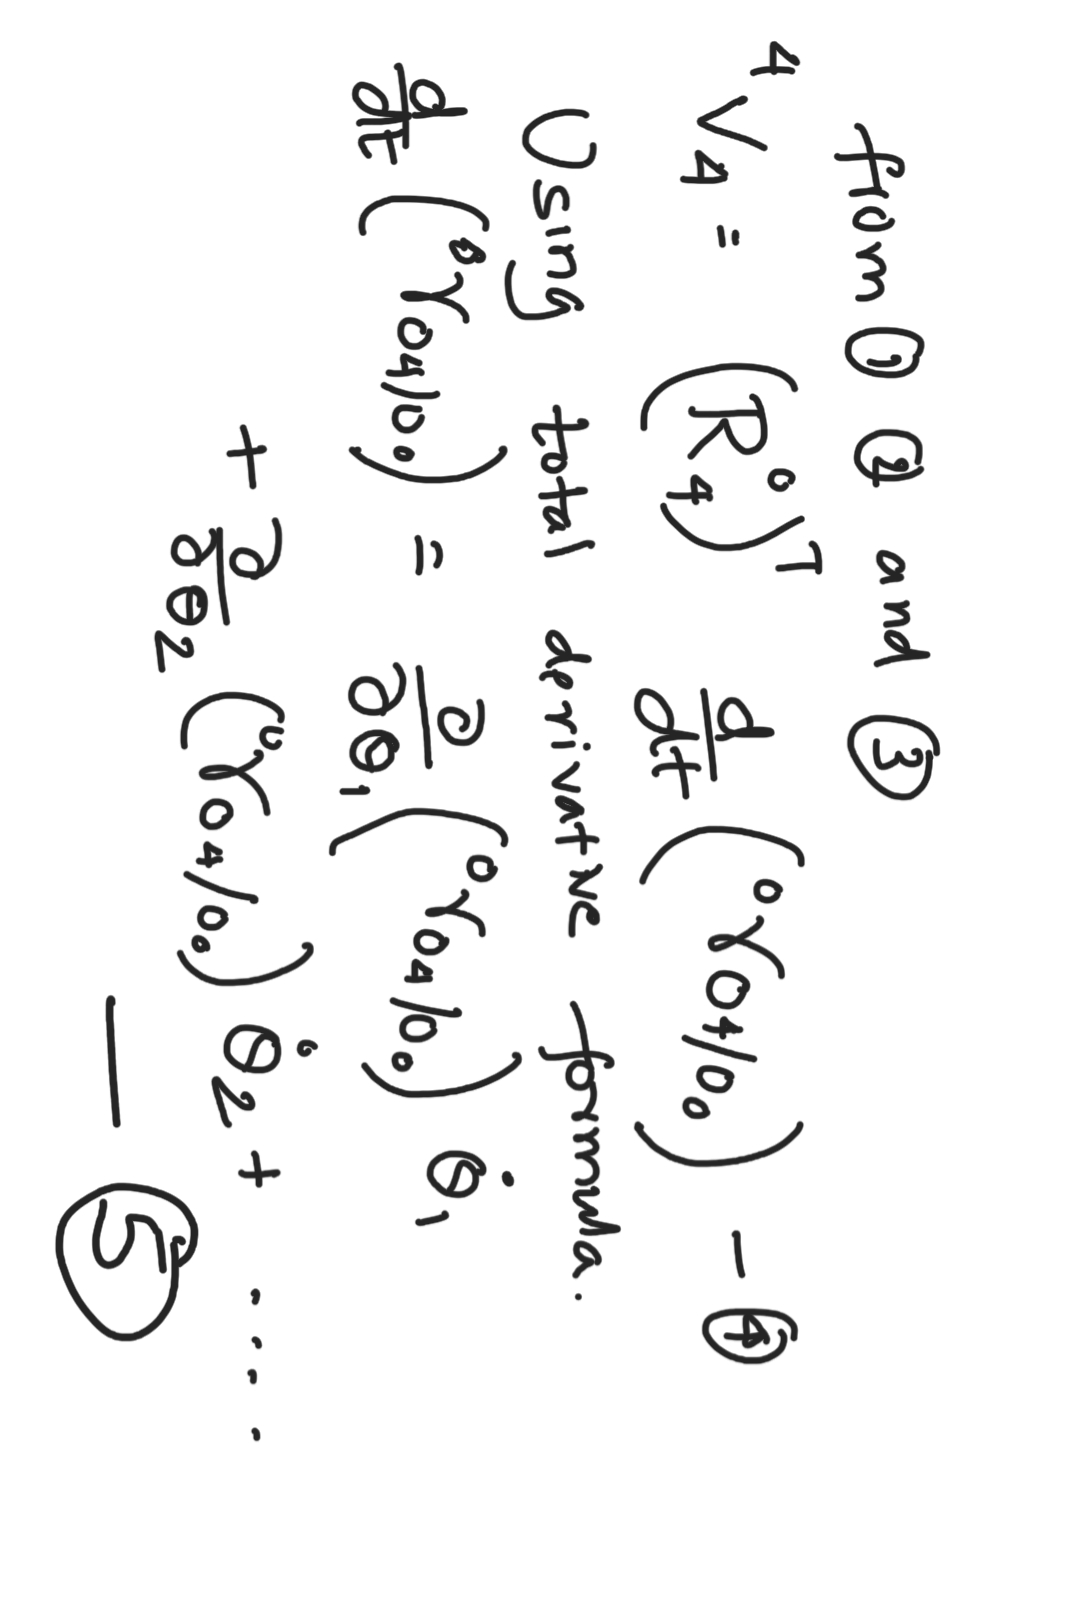 from ① ② and ③
⁴V₄ = (R⁰₄)ᵀ d/dt (⁰r₀₄/₀₀) - ④
Using total derivative formula.
d/dt (⁰r₀₄/₀₀) = ∂/∂θ₁ (⁰r₀₄/₀₀) θ̇₁
+ ∂/∂θ₂ (⁰r₀₄/₀₀) θ̇₂ + ....
— ⑤